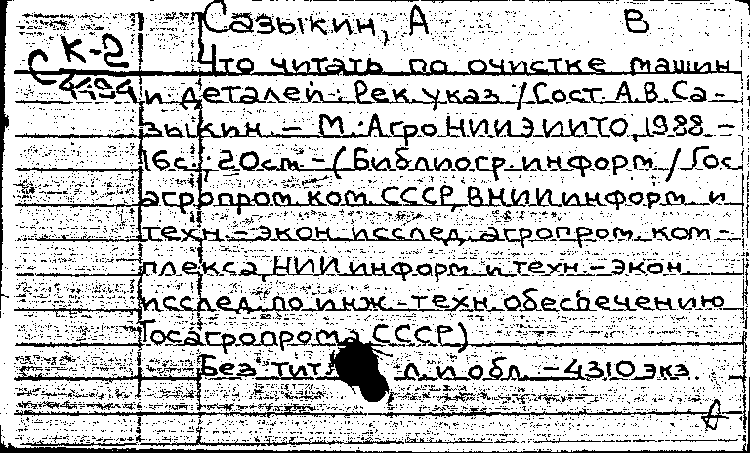 Сазыкин, А В
С К-2
4494
Что читать по очистке машин
и деталей: Рек. указ / Сост. А.В. Са-
зыкин. – М.: АгроНИИЭИИТО, 1988 –
16с.; 20см – (Библиогр. информ / Гос
агропром. ком. СССР, ВНИИинформ и
техн. – экон. исслед. агропром. ком-
плекса, НИИ информ и техн. – экон.
исслед. по инж. – техн. обеспечению
Госагропрома СССР)
Без тит. л. и обл. – 4310 экз.